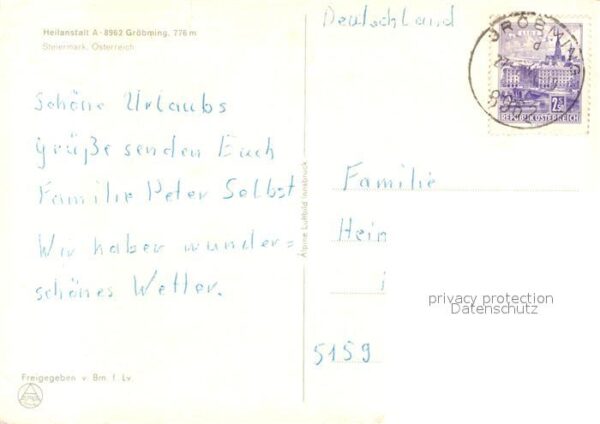 Heilanstalt A-8962 Gröbming, 776 m
Steiermark, Österreich
Deutschland
2S
REPUBLIK ÖSTERREICH
8962
Schöne Urlaubs
grüße senden Euch
Familie Peter Selbst
Wir haben wunder=
schönes Wetter.
Alpine Luftbild Innsbruck
Familie
Hein
i
5159
privacy protection
Datenschutz
Freigegeben v. Bm. f. Lv.